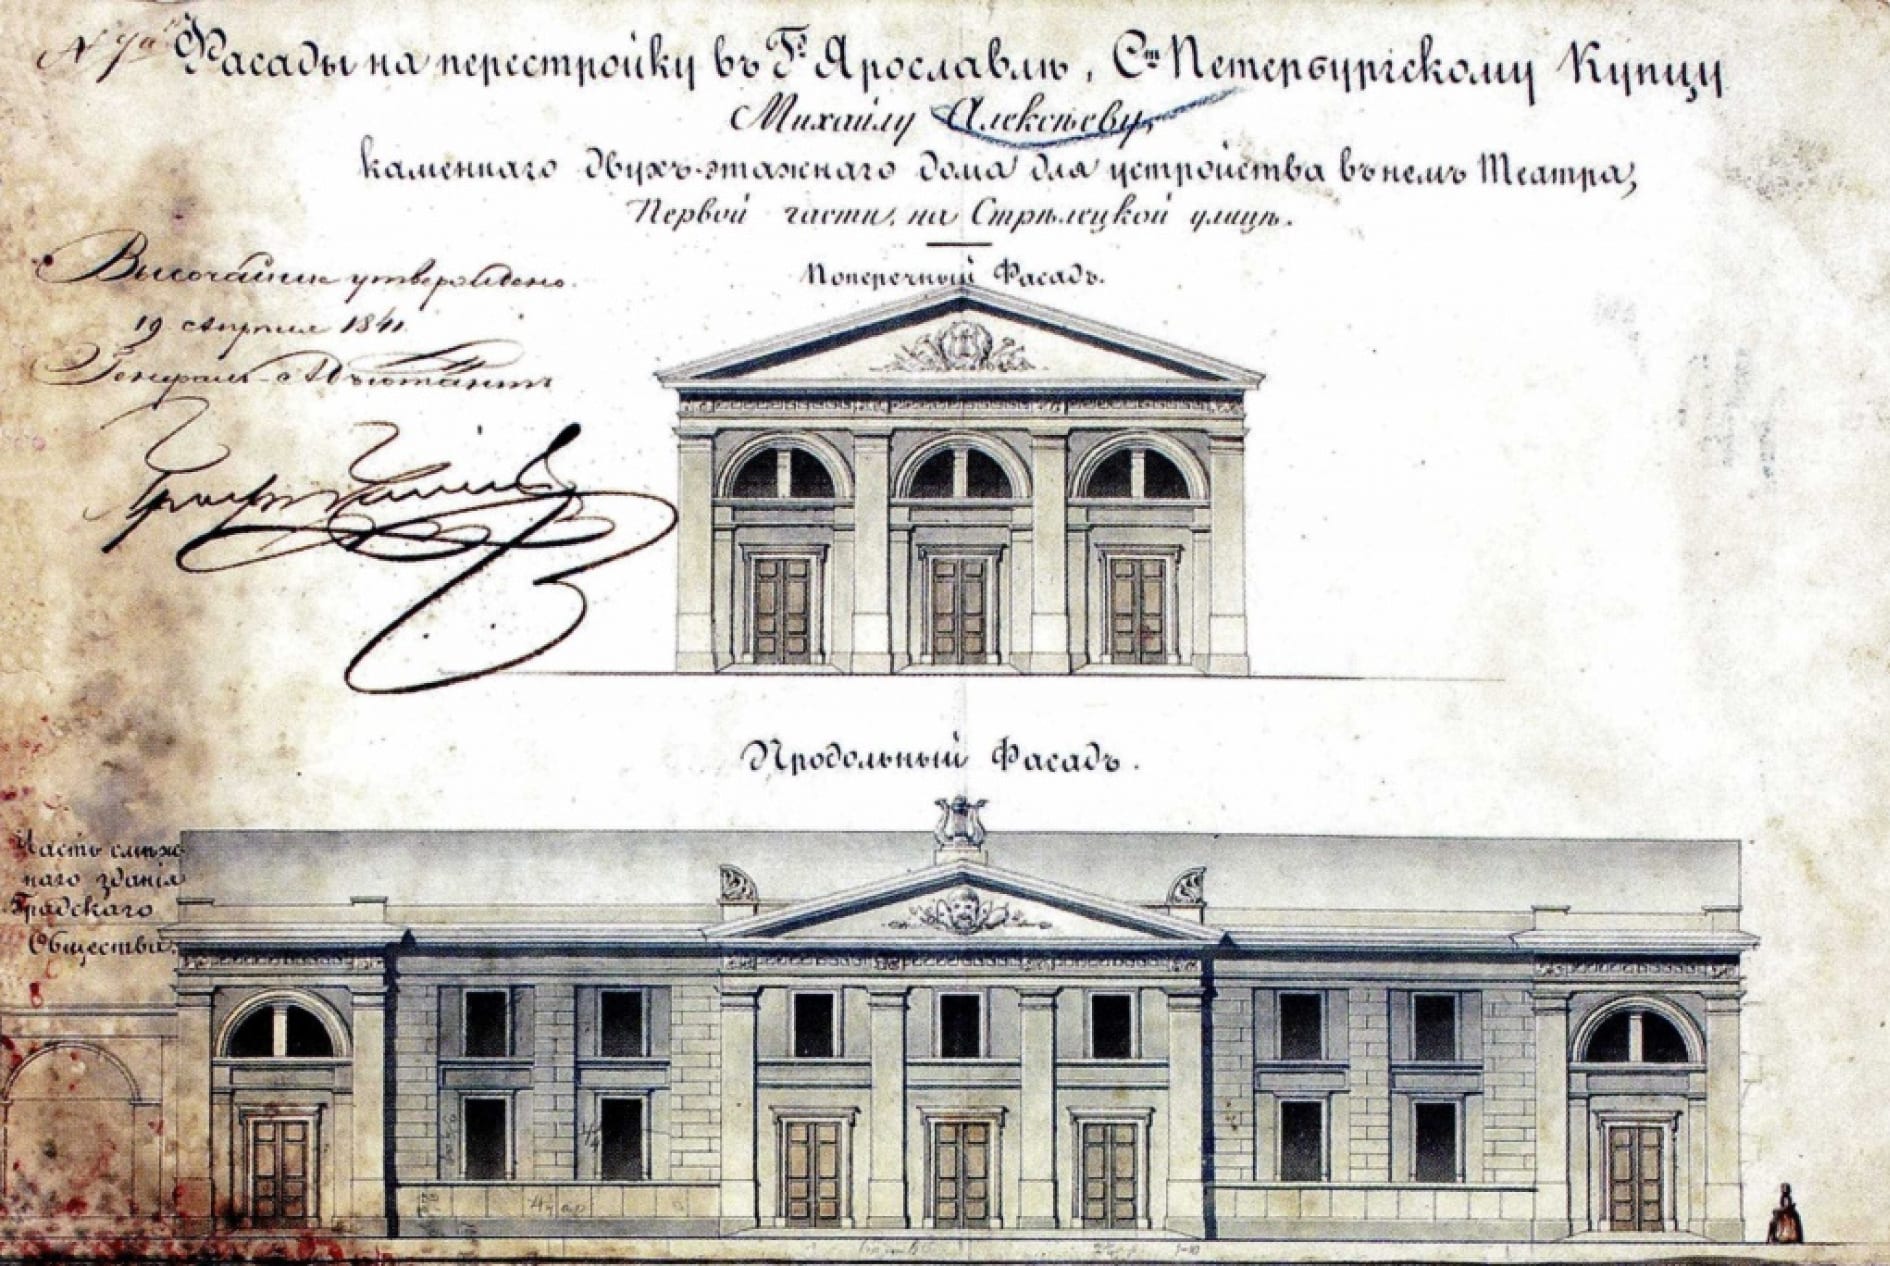 Фасады на перестройку въ Г. Ярославлѣ, Ст Петербургскому Купцу
Михайлу Алексѣеву,
каменнаго двухъ-этажнаго дома для устройства въ немъ Театра,
Первой части, на Стрѣлецкой улицѣ.
Высочайше утверждено.
19 Апрѣля 1841.
Генералъ-Адъютантъ
Графъ
Поперечный Фасадъ.
Продольный Фасадъ.
Часть смеж
наго зданія
Градскаго
Общества.